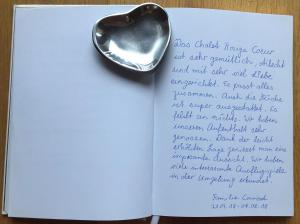 Das Chalet Rouge Coeur
ist sehr gemütlich, stilecht
und mit sehr viel Liebe
eingerichtet. Es passt alles
zusammen. Auch die Küche
ist super ausgestattet. Es
fehlt an nichts. Wir haben
unseren Aufenthalt sehr
genossen. Dank der leicht
erhöhten Lage geniesst man eine
imposante Aussicht. Wir haben
viele interessante Ausflugsziele
in der Umgebung erkundet.
Familie